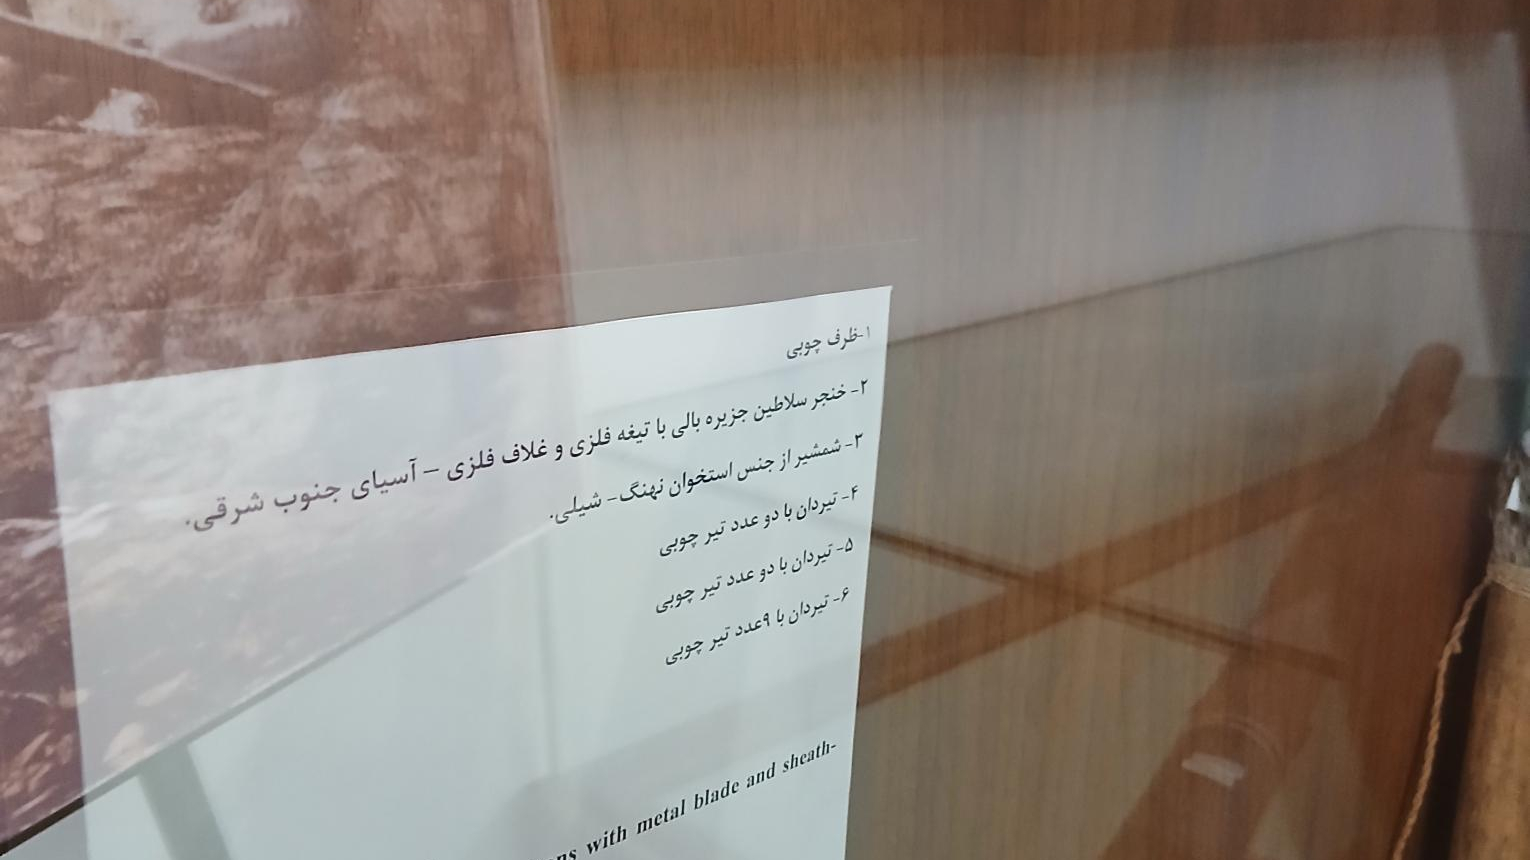 ۱-ظرف چوبی
۲- خنجر سلاطین جزیره بالی با تیغه فلزی و غلاف فلزی – آسیای جنوب شرقی.
۳- شمشیر از جنس استخوان نهنگ- شیلی.
۴- تیردان با دو عدد تیر چوبی
۵- تیردان با دو عدد تیر چوبی
۶- تیردان با ۹عدد تیر چوبی
with metal blade and sheath-